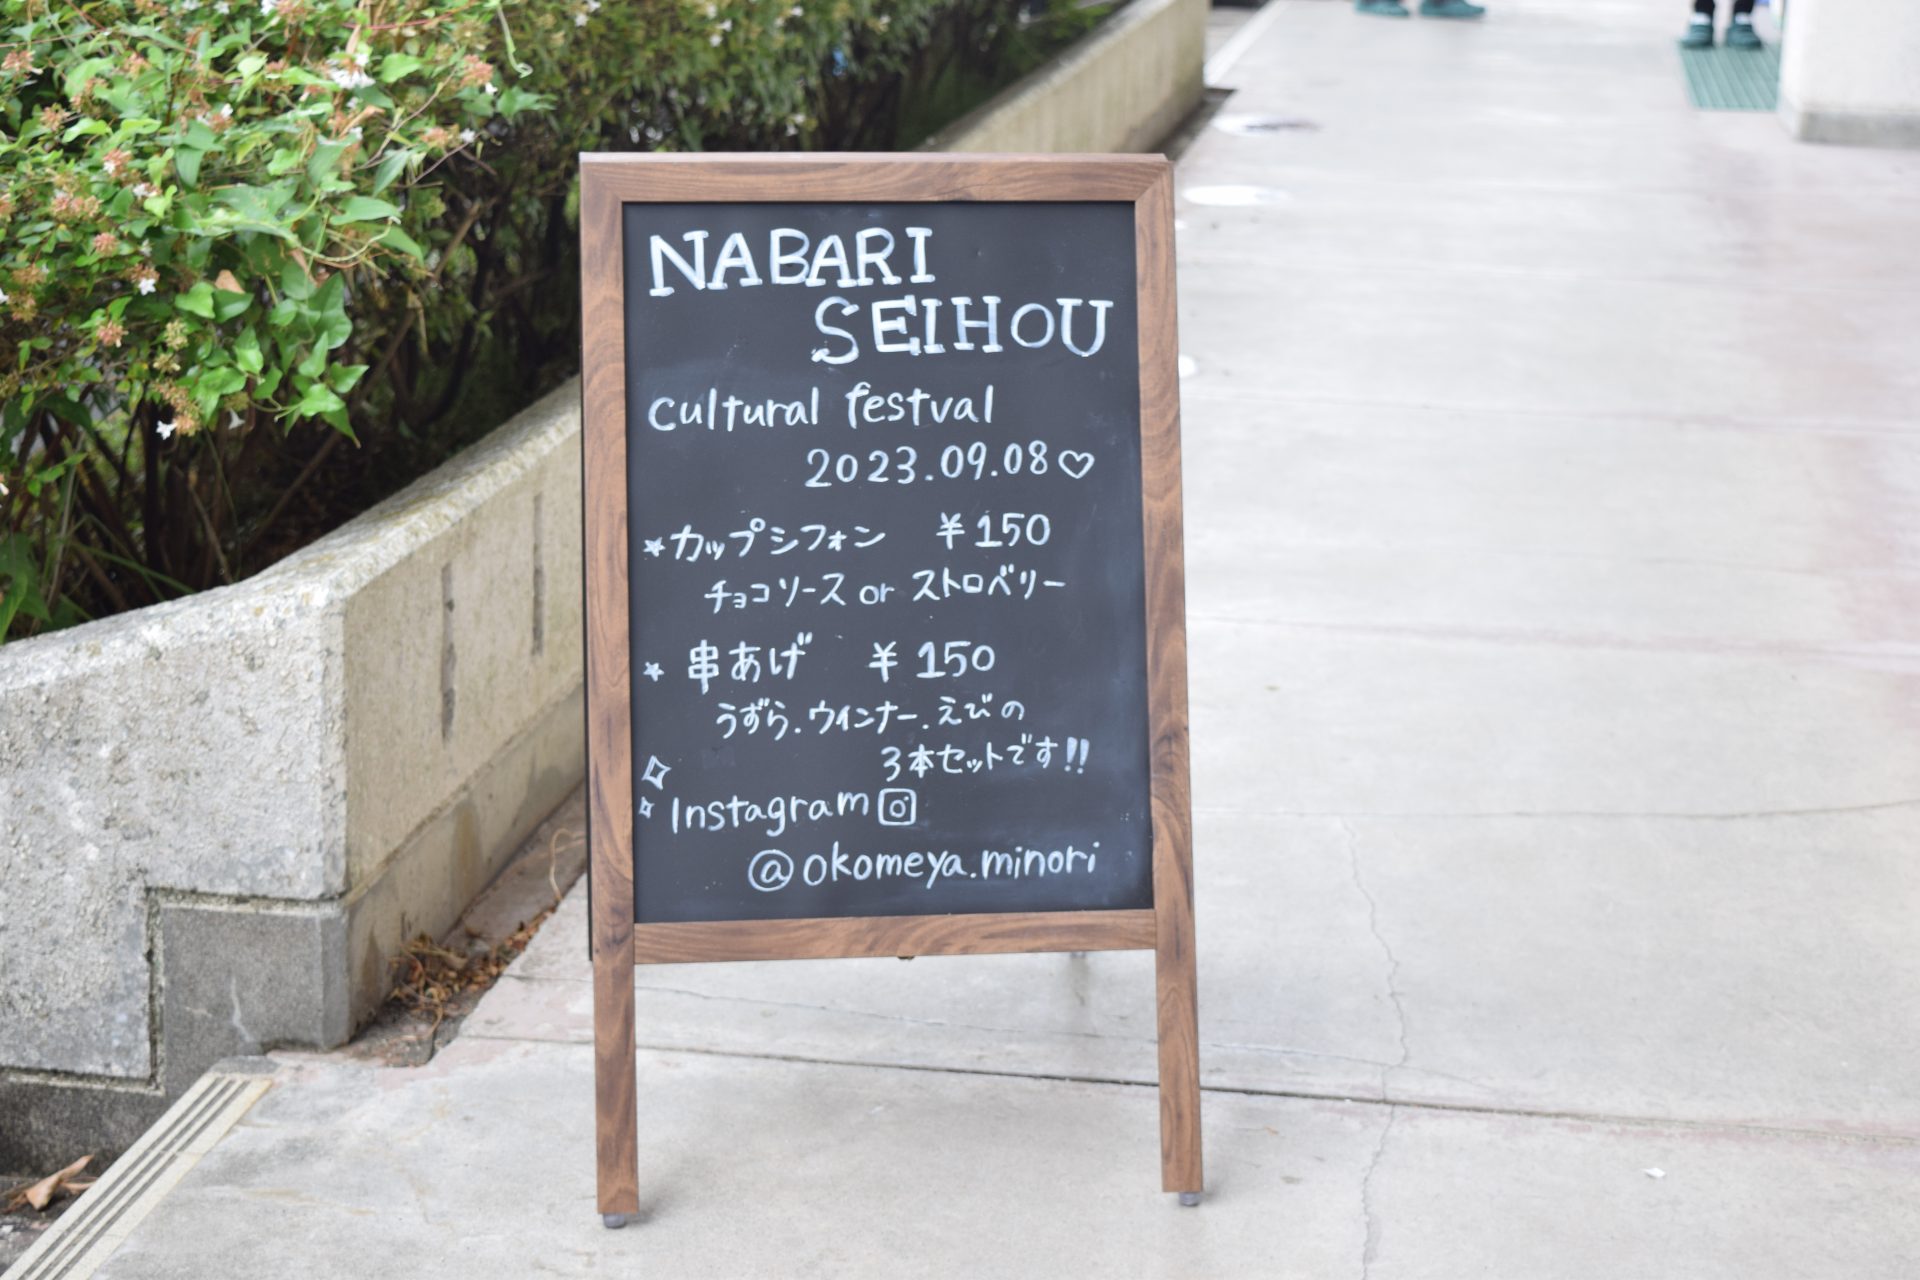 NABARI
SEIHOU
cultural festval
2023.09.08♡
★カップシフォン ¥150
チョコソース or ストロベリー
★串あげ ¥150
うずら.ウインナー.えびの
3本セットです!!
Instagram
@okomeya.minori